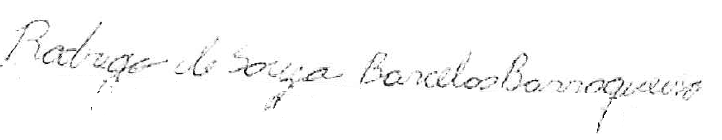 Rodrigo de Souza Barcelos Barroqueiro